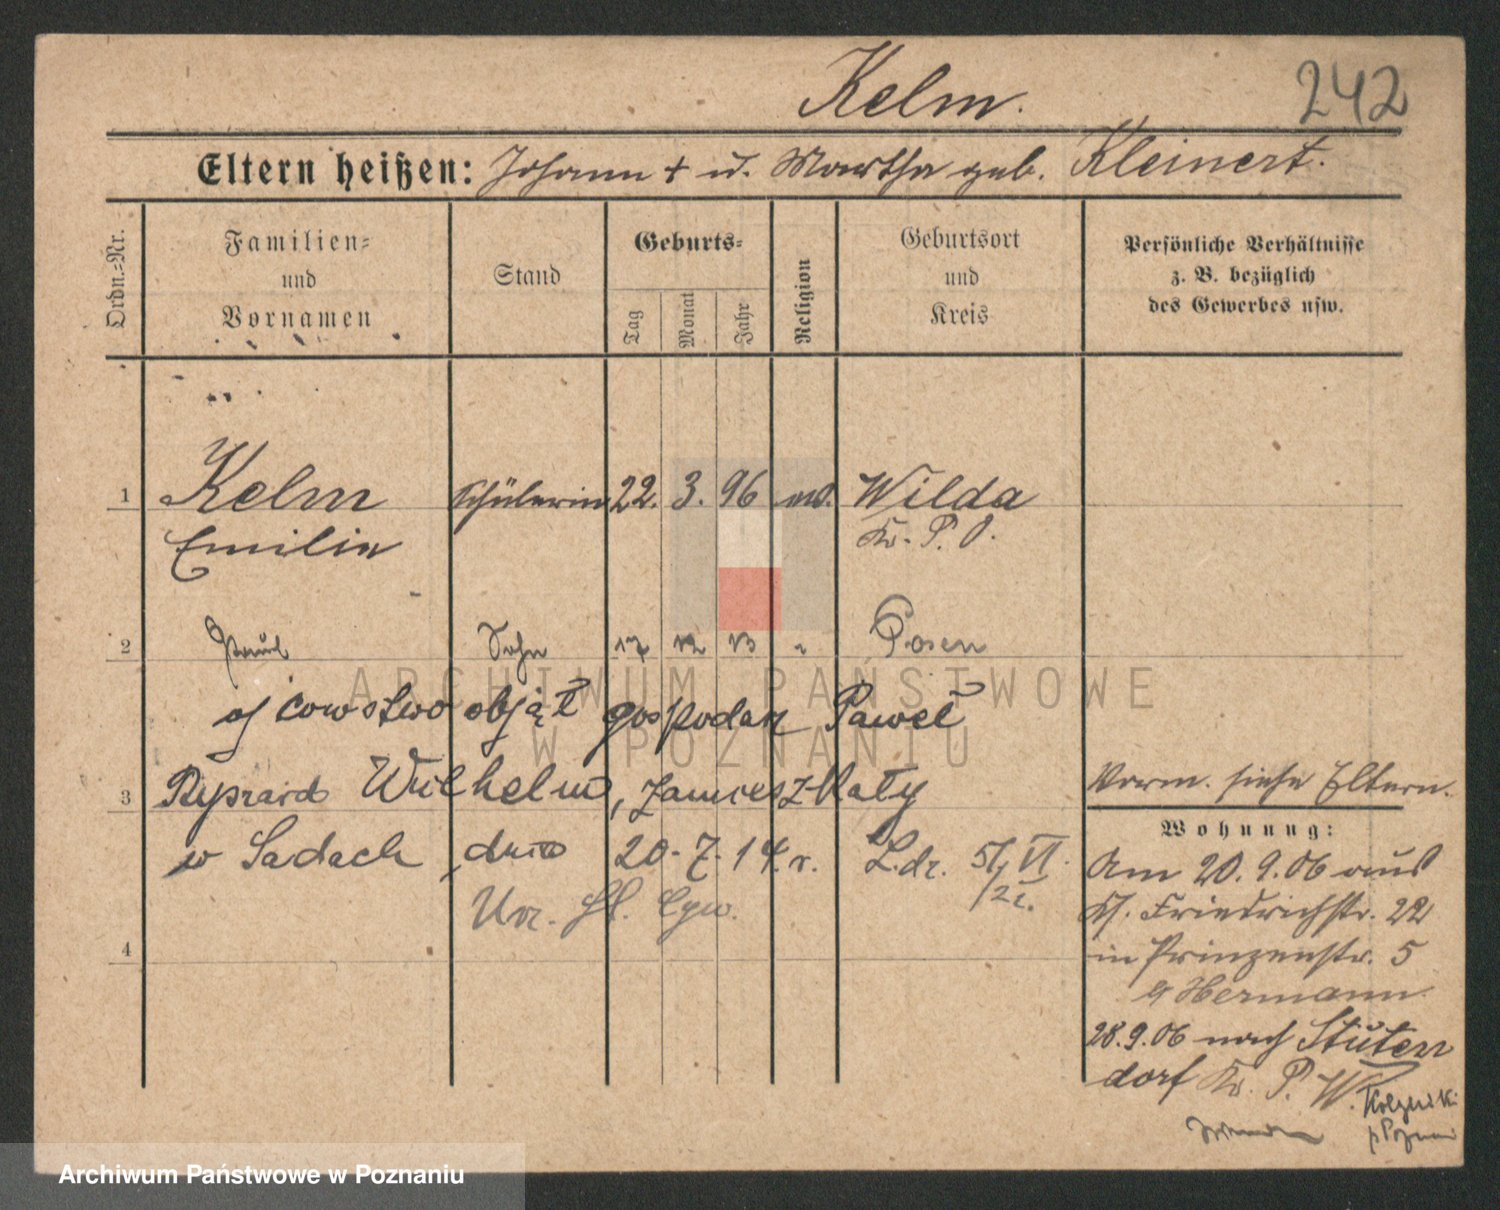 Kelm.
242
Eltern heißen: Johann + u. Martha geb. Kleinert.
Ordn.=Nr.
Familien=
und
Vornamen
Stand
Geburts=
Tag
Monat
Jahr
Religion
Geburtsort
und
Kreis
Persönliche Verhältnisse
z. B. bezüglich
des Gewerbes usw.
1 Kelm Schülerin 22. 3. 96 ev. Wilda
Emilie Kr. P. O.
2 Paul Sohn 17 12 13 " Posen
ojcowstwo objął gospodarz Paweł
3 Ryszard Wilhelm, zamieszkały
w Sadach dnia 20. 7. 14. r. L.dr. 57/VI.
/21.
4
Vorm. siehe Eltern.
Wohnung:
Am 20.9.06 aus
Kl. Friedrichstr. 22
in Prinzenstr. 5
b/ Hermann
28.9.06 nach Stüten
dorf Kr. P. W.
ARCHIWUM PAŃSTWOWE
W POZNANIU
Archiwum Państwowe w Poznaniu